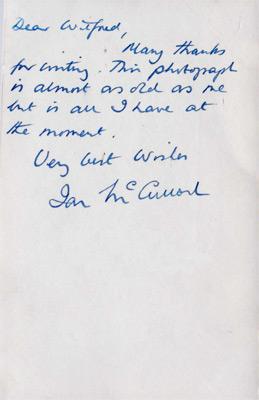 Dear Wilfred,
Many thanks
for writing. This photograph
is almost as old as me
but is all I have at
the moment.
Very best Wishes
Ian McCulloch